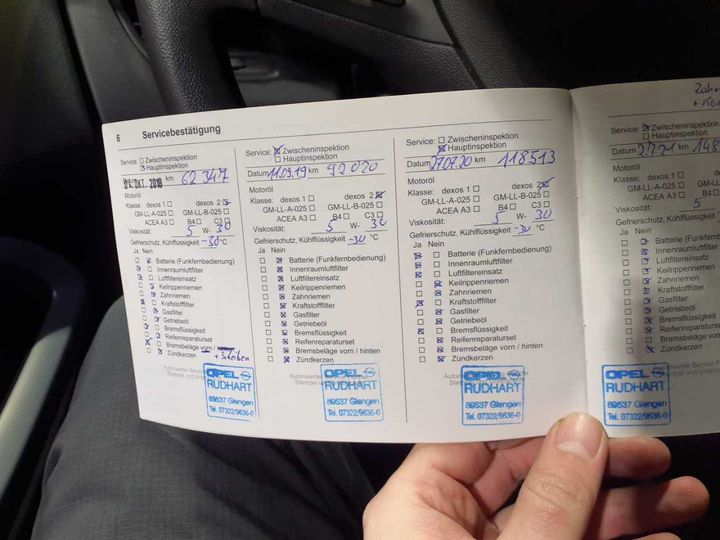 6 Servicebestätigung
Service: ☐ Zwischeninspektion
☒ Hauptinspektion
OKT. 2018 km 62 347
Motoröl
Klasse: dexos 1 ☐ dexos 2 ☒
GM-LL-A-025 ☐ GM-LL-B-025 ☐
ACEA A3 ☐ B4 ☐ C3 ☐
Viskosität: 5 W- 30
Gefrierschutz, Kühlflüssigkeit -30 °C
Ja Nein
Batterie (Funkfernbedienung)
Innenraumluftfilter
Luftfiltereinsatz
Keilrippenriemen
Zahnriemen
Kraftstofffilter
Gasfilter
Getriebeöl
Bremsflüssigkeit
Reifenreparaturset
Bremsbeläge vorn
+ Scheiben
Zündkerzen
OPEL
RUDHART
89537 Giengen
Tel. 07322/9636-0
Service: ☒ Zwischeninspektion
☐ Hauptinspektion
Datum 11.09.19 km 92 020
Motoröl
Klasse: dexos 1 ☐ dexos 2 ☒
GM-LL-A-025 ☐ GM-LL-B-025 ☐
ACEA A3 ☐ B4 ☐ C3 ☐
Viskosität: 5 W- 30
Gefrierschutz, Kühlflüssigkeit -30 °C
Ja Nein
Batterie (Funkfernbedienung)
Innenraumluftfilter
Luftfiltereinsatz
Keilrippenriemen
Zahnriemen
Kraftstofffilter
Gasfilter
Getriebeöl
Bremsflüssigkeit
Reifenreparaturset
Bremsbeläge vorn / hinten
Zündkerzen
OPEL
RUDHART
89537 Giengen
Tel. 07322/9636-0
Service: ☐ Zwischeninspektion
☒ Hauptinspektion
Datum 27.07.20 km 118513
Motoröl
Klasse: dexos 1 ☐ dexos 2 ☒
GM-LL-A-025 ☐ GM-LL-B-025 ☐
ACEA A3 ☐ B4 ☐ C3 ☐
Viskosität: 5 W- 30
Gefrierschutz, Kühlflüssigkeit -30 °C
Ja Nein
Batterie (Funkfernbedienung)
Innenraumluftfilter
Luftfiltereinsatz
Keilrippenriemen
Zahnriemen
Kraftstofffilter
Gasfilter
Getriebeöl
Bremsflüssigkeit
Reifenreparaturset
Bremsbeläge vorn / hinten
Zündkerzen
OPEL
RUDHART
89537 Giengen
Tel. 07322/9636-0
Service: Zwischeninspektion
Hauptinspektion
Datum km 148
Motoröl
Klasse: dexos 1 ☐
GM-LL-A-025 ☐
ACEA A3 ☐
Viskosität: 5
Gefrierschutz, Kühlflüssig
Ja Nein
Batterie (Funkf
Innenraumluft
Luftfiltereinsatz
Keilrippenriemen
Zahnriemen
Kraftstofffilter
Gasfilter
Getriebeöl
Bremsflüssigkeit
Reifenreparatur
Bremsbeläge
Zündkerzen
OPEL
RUDHART
89537 Giengen
Tel. 07322/9636-0